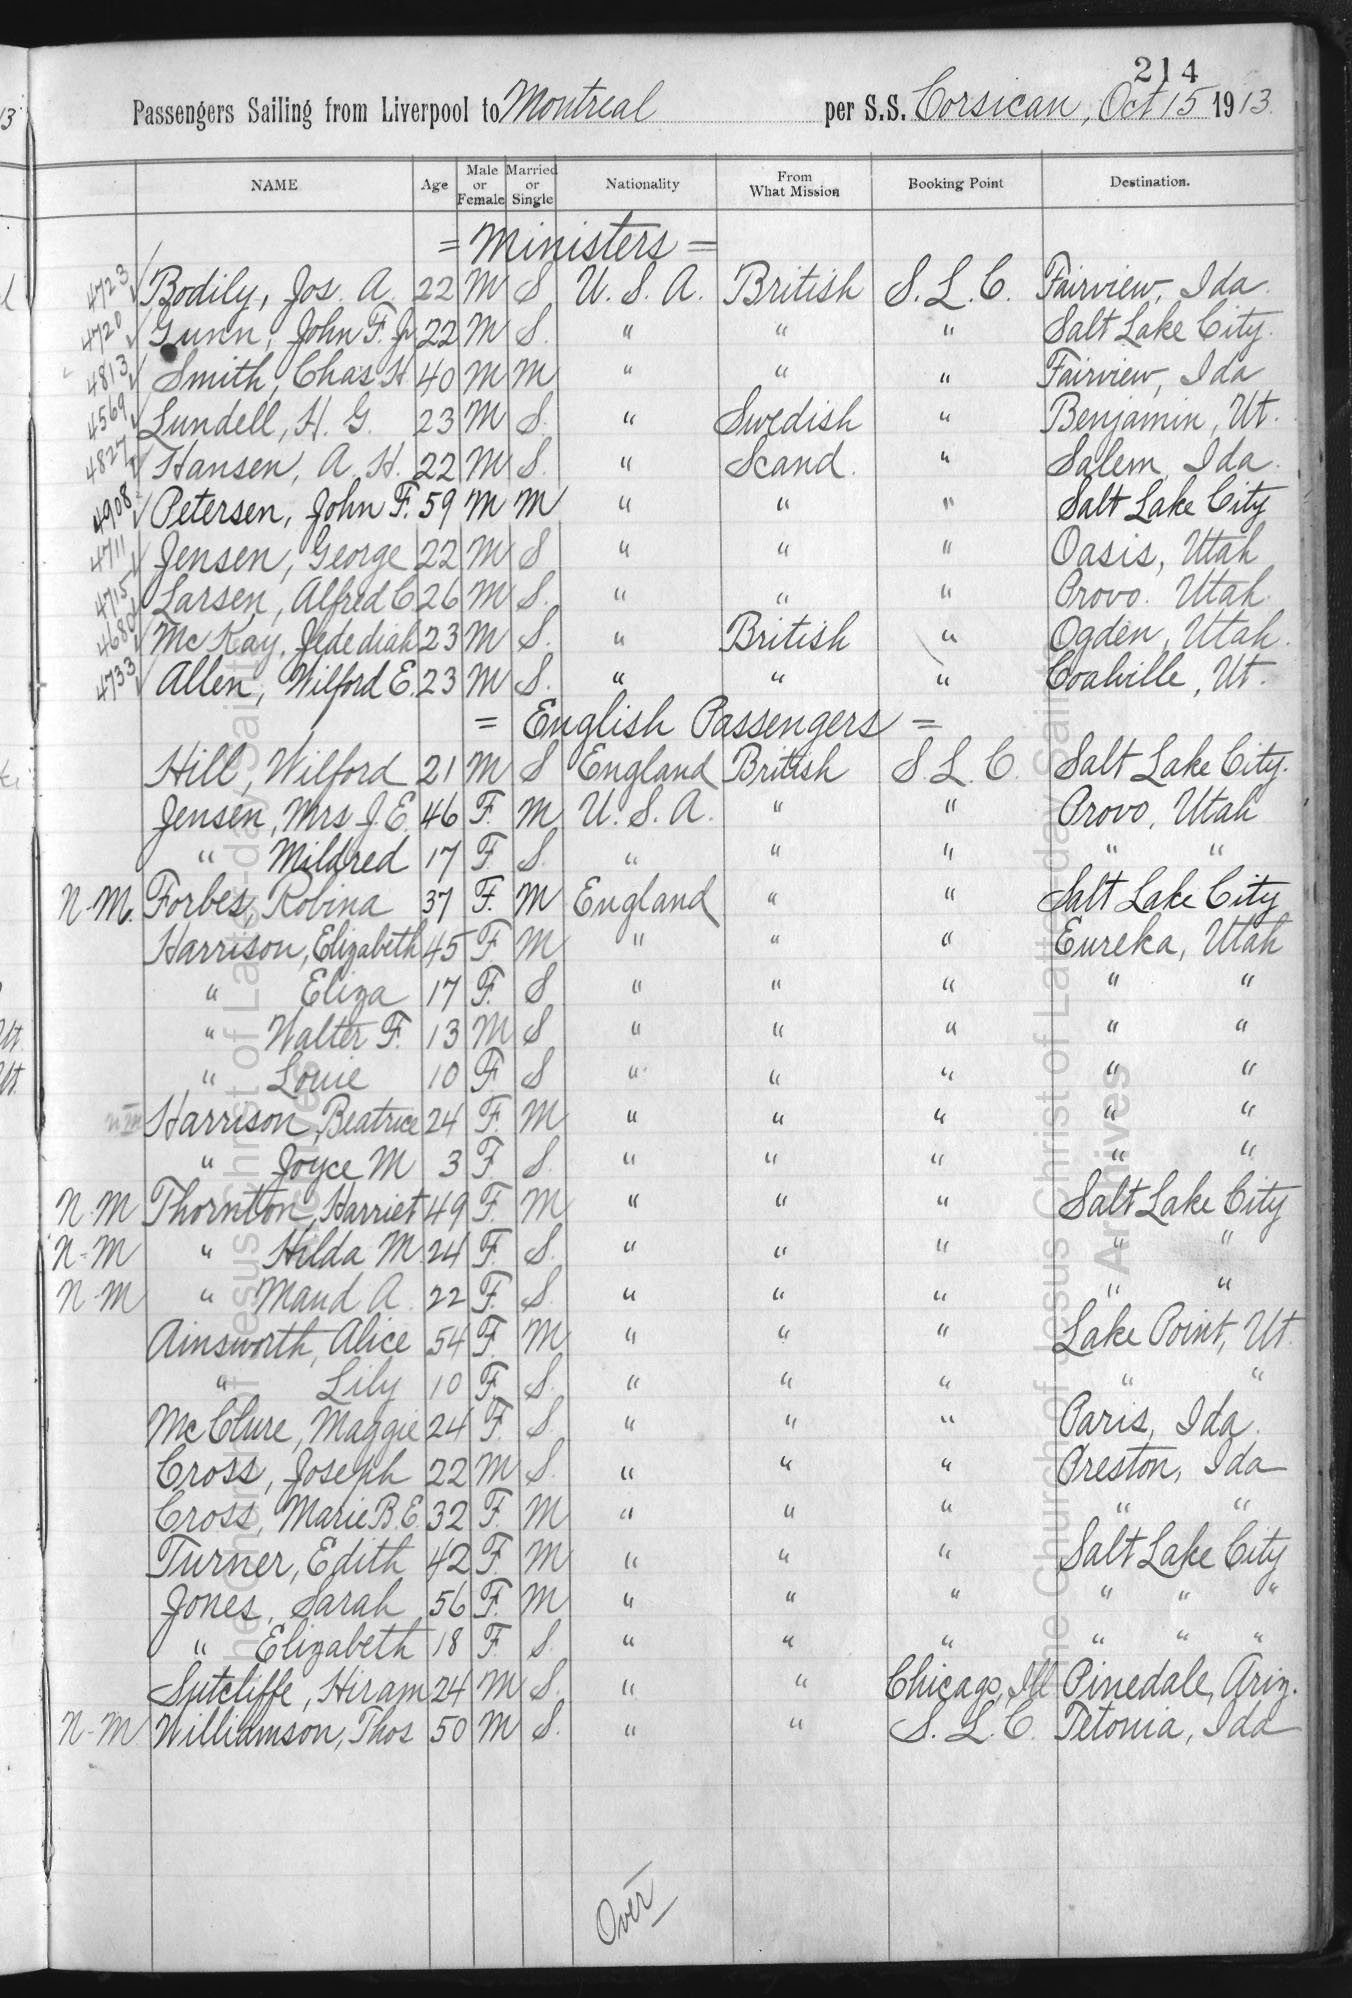 214
Passengers Sailing from Liverpool to Montreal per S.S. Corsican, Oct 15 1913.
NAME Age Male or Female Married or Single Nationality From What Mission Booking Point Destination.
= Ministers =
4723 Bodily, Jos. A. 22 M S U. S. A. British S. L. C. Fairview, Ida.
4720 Gunn, John F. Jr 22 M S. " " " Salt Lake City.
4813 Smith, Chas. H 40 M M " " " Fairview, Ida
4569 Lundell, H. G. 23 M S. " Swedish " Benjamin, Ut.
4827 Hansen, A. H. 22 M S. " Scand. " Salem, Ida.
4908 Petersen, John F. 59 M M " " " Salt Lake City
4711 Jensen, George 22 M S " " " Oasis, Utah
4715 Larsen, Alfred C 26 M S. " " " Provo. Utah.
4680 McKay, Jedediah 23 M S. " British " Ogden, Utah.
4733 Allen, Wilford E. 23 M S. " " " Coalville, Ut.
= English Passengers =
Hill, Wilford 21 M S England British S L C. Salt Lake City.
Jensen, Mrs J. E. 46 F. M U. S. A. " " Provo, Utah
" Mildred 17 F. S. " " " " "
N-M. Forbes, Robina 37 F. M England " " Salt Lake City
Harrison, Elizabeth 45 F. M " " " Eureka, Utah
" Eliza 17 F. S " " " " "
" Walter F. 13 M S " " " " "
" Louie 10 F. S " " " " "
NM Harrison, Beatrice 24 F. M " " " " "
" Joyce M 3 F. S. " " " " "
N-M Thornton, Harriet 49 F. M " " " Salt Lake City
N-M " Hilda M. 24 F. S. " " " " "
N-M " Maud A. 22 F. S. " " " " "
Ainsworth, Alice 54 F. M " " " Lake Point, Ut.
" Lily 10 F. S. " " " " "
McClure, Maggie 24 F. S. " " " Paris, Ida.
Cross, Joseph 22 M S. " " " Preston, Ida
Cross, Marie B. E. 32 F. M " " " " "
Turner, Edith 42 F. M " " " Salt Lake City
Jones, Sarah 56 F. M " " " " " "
" Elizabeth 18 F. S. " " " " " "
Sutcliffe, Hiram 24 M S. " " Chicago, Ill Pinedale, Ariz.
N-M Williamson, Thos 50 M S. " " S. L. C. Tetonia, Ida
Over